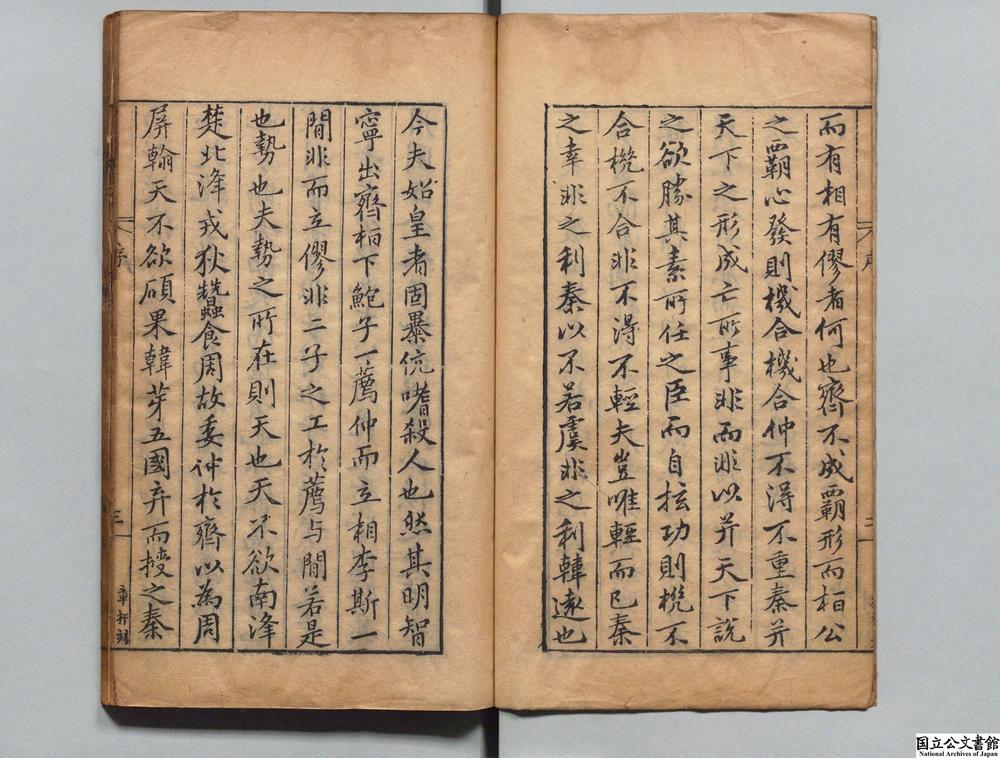 而有相有僇者何也齊不成霸形而桓公
之霸心發則機合機合仲不得不重秦并
天下之形成亡所事非而非以并天下說
之欲勝其素所任之臣而自功則機不
合機不合非不得不輕夫豈唯輕而已秦
之幸非之利秦以不若虞非之利韓遠也
今夫始皇者固暴伉嗜殺人也然其明智
寧出齊桓下鮑子一薦仲而立相李斯一
間非而立僇非二子之工於薦与間若是
也勢也夫勢之所在則天也天不欲南洚
楚北洚戎狄蠶食周故委仲於齊以為周
屏翰天不欲碩果韓芽五國弃而授之秦
序
三
章扞刻
国立公文書館
National Archives of Japan